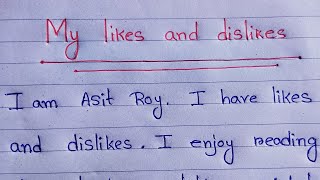 My likes and dislikes
I am Asit Roy. I have likes
and dislikes. I enjoy reading